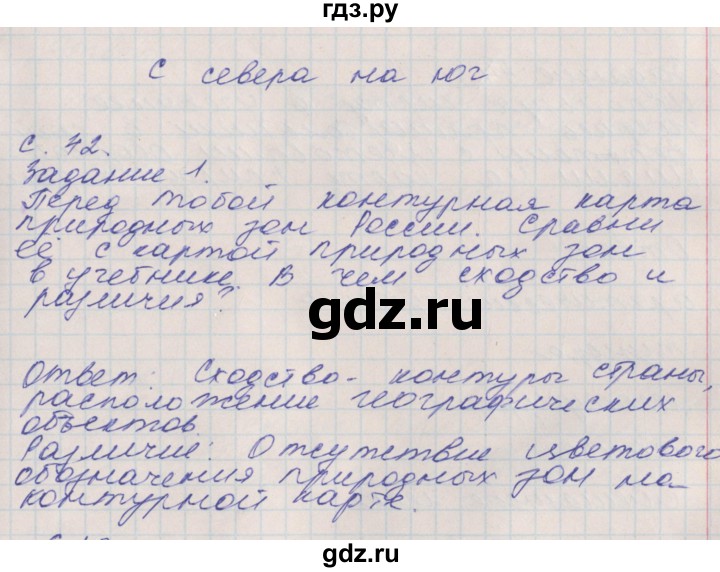 гдз.ру
С севера на юг
с. 42.
Задание 1.
Перед тобой контурная карта
природных зон России. Сравни
её с картой природных зон
в учебнике. В чем сходство и
различия?
gdz.ru
Ответ: Сходство - контуры страны,
расположение географических
объектов.
Различие: Отсутствие цветового
обозначения природных зон на
контурной карте.
gdz.ru